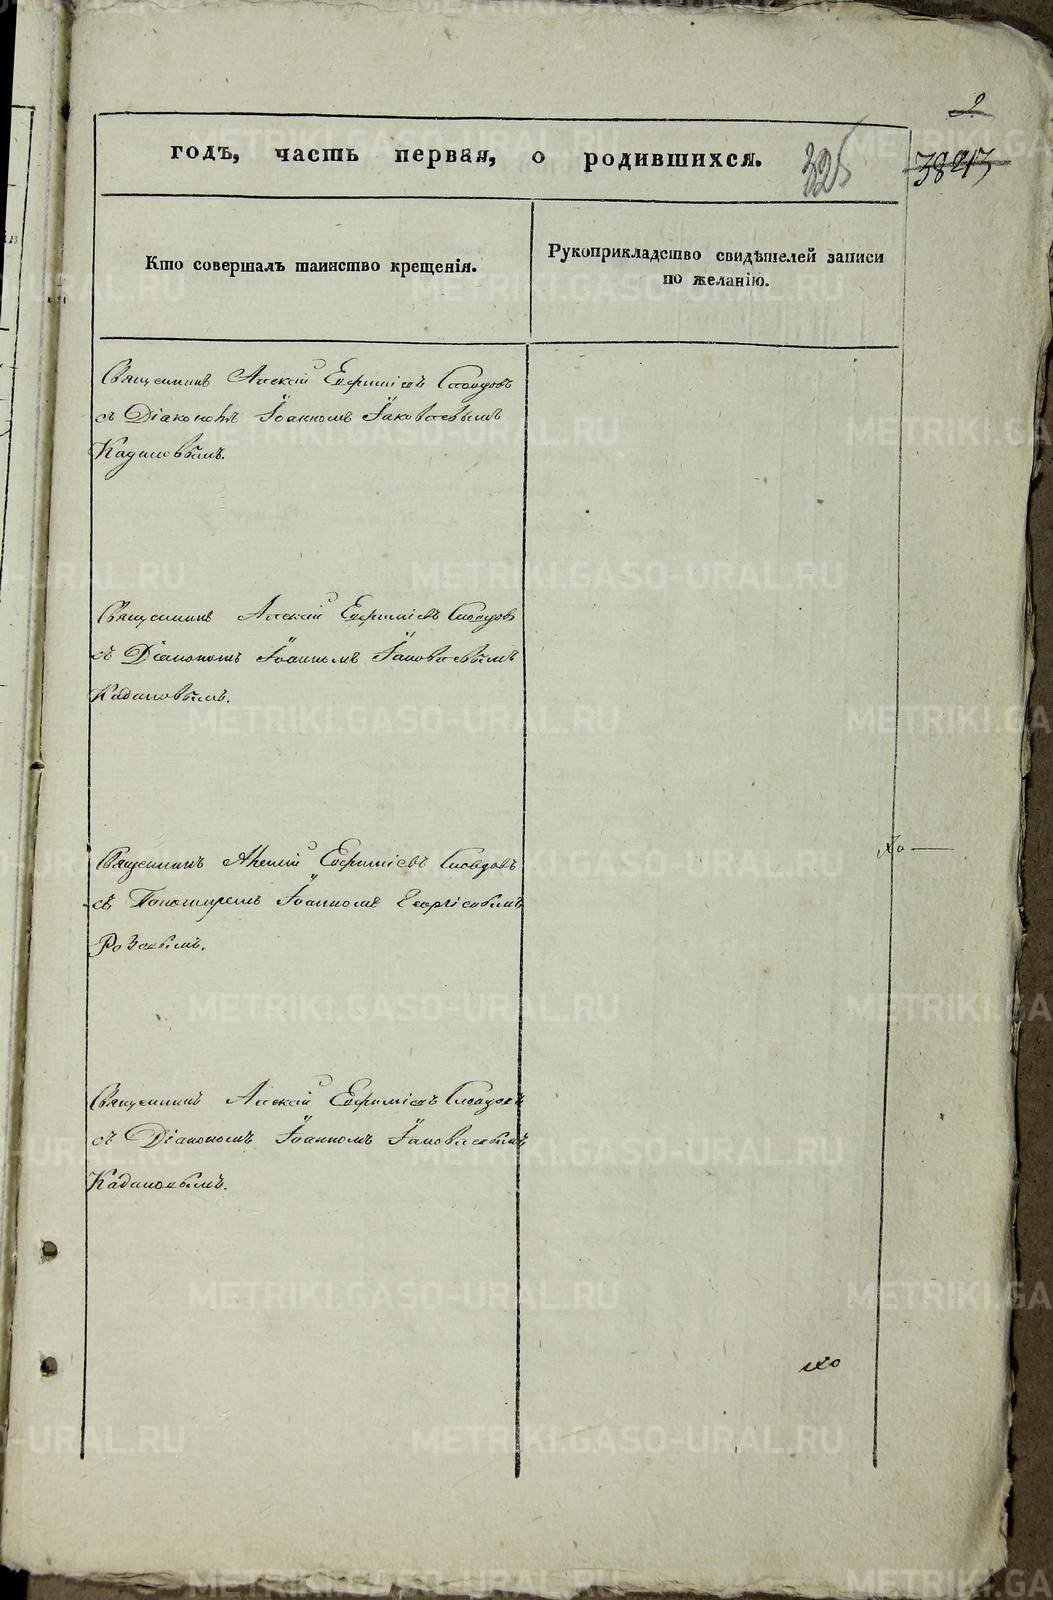 2
годъ, часть первая, о родившихся.
325
Кто совершалъ таинство крещенія.
Рукоприкладство свидѣтелей записи
по желанію.
Священникъ Алексій Евфиміевъ Словцовъ
съ Діакономъ Іоанномъ Іаковлевымъ
Кадиловымъ.
Священникъ Алексій Евфиміевъ Словцов
съ Діакономъ Іоанномъ Іаковлевымъ
Кадиловымъ.
Священникъ Алексій Евфиміевъ Словцовъ
съ Пономаремъ Іоанномъ Георгіевымъ
Розовымъ.
Священникъ Алексій Евфиміевъ Словцовъ
съ Діакономъ Іоанномъ Іаковлевымъ
Кадиловымъ.
METRIKI.GASO-URAL.RU